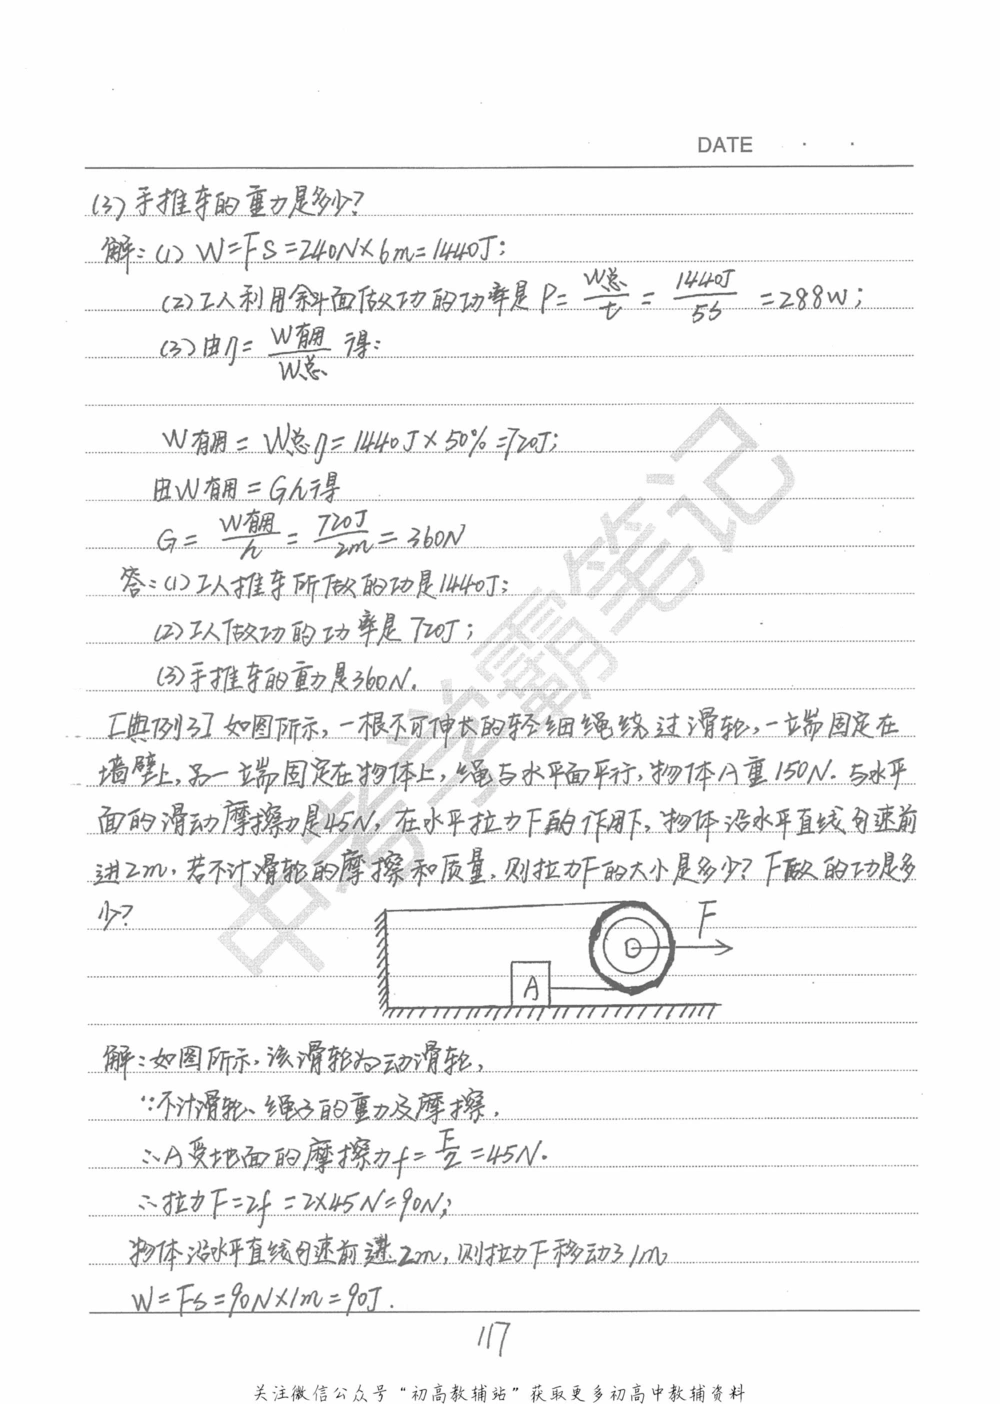 DATE · ·
(3)手推车的重力是多少?
解:(1) W=FS=240N×6m=1440J;
(2)工人利用斜面做功的功率是P=W总/t=1440J/5s=288W;
(3)由η=W有用/W总 得:
W有用=W总η=1440J×50%=720J;
由W有用=Gh得
G=W有用/h=720J/2m=360N
答:(1)工人推车所做的功是1440J;
(2)工人做功的功率是720J;
(3)手推车的重力是360N.
[典例3]如图所示,一根不可伸长的轻细绳绕过滑轮,一端固定在
墙壁上,另一端固定在物体上,绳与水平面平行,物体A重150N.与水平
面的滑动摩擦力是45N,在水平拉力F的作用下,物体沿水平直线匀速前
进2m,若不计滑轮的摩擦和质量,则拉力F的大小是多少?F做的功是多
少?
F
A
解:如图所示,该滑轮为动滑轮,
∵不计滑轮、绳子的重力及摩擦,
∴A受地面的摩擦力f=F/2=45N.
∴拉力F=2f=2×45N=90N;
物体沿水平直线匀速前进2m,则拉力F移动了1m
W=Fs=90N×1m=90J.
117
中考学霸笔记
关注微信公众号“初高教辅站”获取更多初高中教辅资料